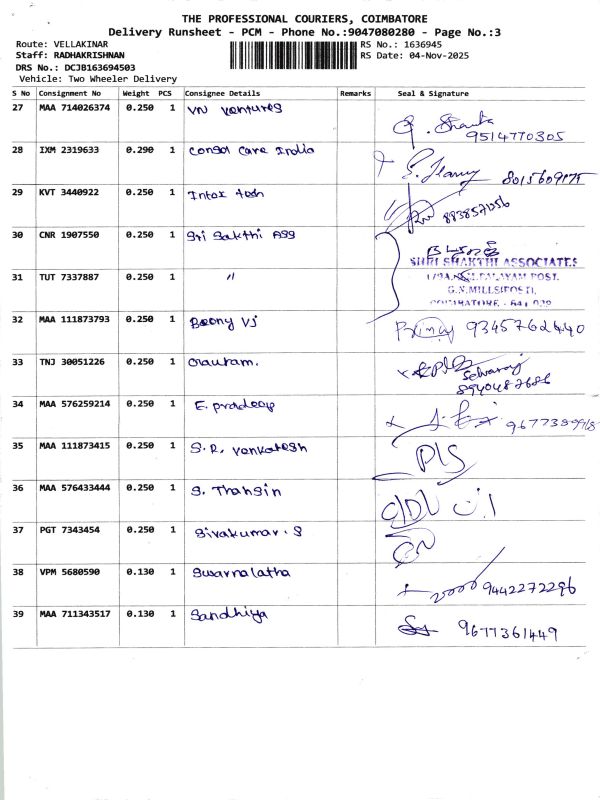 THE PROFESSIONAL COURIERS, COIMBATORE
Delivery Runsheet - PCM - Phone No.:9047080280 - Page No.:3
Route: VELLAKINAR
RS No.: 1636945
Staff: RADHAKRISHNAN
RS Date: 04-Nov-2025
DRS No.: DCJB163694503
Vehicle: Two Wheeler Delivery
S No Consignment No Weight PCS Consignee Details Remarks Seal & Signature
27 MAA 714026374 0.250 1 VN Ventures
9514770305
28 IXM 2319633 0.290 1 Consol Care India
8015609175
29 KVT 3440922 0.250 1 Intox tesh
8838571056
30 CNR 1907550 0.250 1 Sri Sakthi Ass
SHRI SHAKTHI ASSOCIATES
31 TUT 7337887 0.250 1 "
G.N.MILLS(POST),
COIMBATORE - 641 029
32 MAA 111873793 0.250 1 Beony VJ 9345762440
33 TNJ 30051226 0.250 1 Gautam.
Selvaraj
8940487686
34 MAA 576259214 0.250 1 E. pradeep
35 MAA 111873415 0.250 1 S.R. Venkatesh
36 MAA 576433444 0.250 1 S. Thahsin
37 PGT 7343454 0.250 1 Sivakumar. S
38 VPM 5680590 0.130 1 Swarnalatha 9442272296
39 MAA 711343517 0.130 1 Sandhiya 9677361449